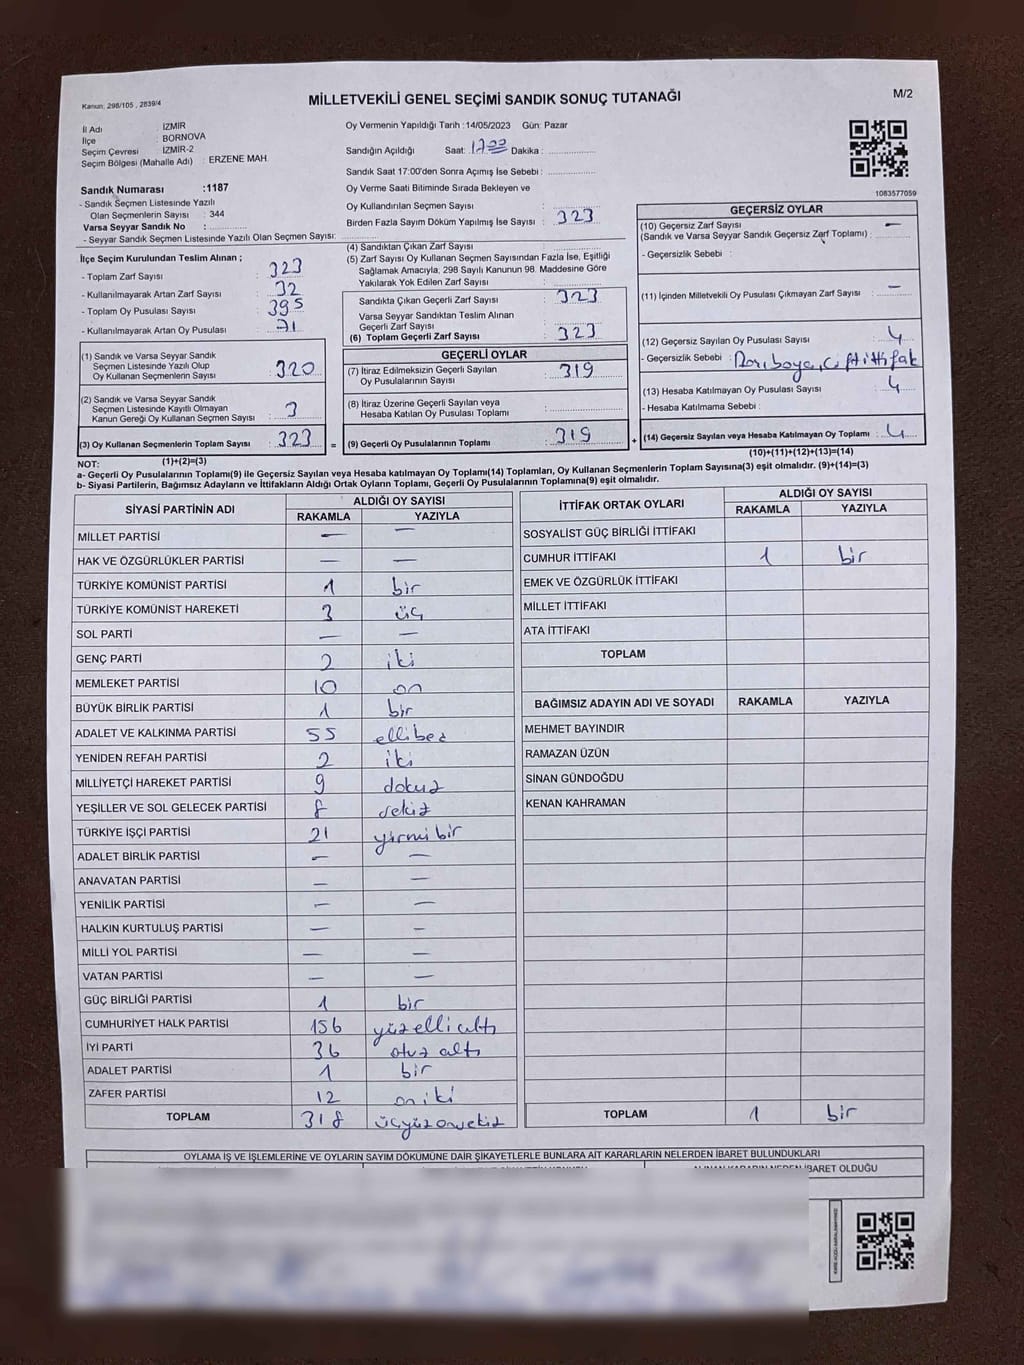 Kanun, 298/105 , 2839/4
MİLLETVEKİLİ GENEL SEÇİMİ SANDIK SONUÇ TUTANAĞI
M/2
İl Adı : İZMİR
İlçe : BORNOVA
Seçim Çevresi : İZMİR-2
Seçim Bölgesi (Mahalle Adı) : ERZENE MAH.
Sandık Numarası :1187
- Sandık Seçmen Listesinde Yazılı
Olan Seçmenlerin Sayısı : 344
Varsa Seyyar Sandık No :
- Seyyar Sandık Seçmen Listesinde Yazılı Olan Seçmen Sayısı:
Oy Vermenin Yapıldığı Tarih :14/05/2023 Gün: Pazar
Sandığın Açıldığı Saat: 17:00 Dakika :
Sandık Saat 17:00'den Sonra Açımış İse Sebebi :
Oy Verme Saati Bitiminde Sırada Bekleyen ve
Oy Kullandırılan Seçmen Sayısı :
Birden Fazla Sayım Döküm Yapılmış İse Sayısı : 323
1083577059
İlçe Seçim Kurulundan Teslim Alınan ;
- Toplam Zarf Sayısı : 323
- Kullanılmayarak Artan Zarf Sayısı : 32
- Toplam Oy Pusulası Sayısı : 395
- Kullanılmayarak Artan Oy Pusulası : 71
(1) Sandık ve Varsa Seyyar Sandık
Seçmen Listesinde Yazılı Olup
Oy Kullanan Seçmenlerin Sayısı : 320
(2) Sandık ve Varsa Seyyar Sandık
Seçmen Listesinde Kayıtlı Olmayan
Kanun Gereği Oy Kullanan Seçmen Sayısı : 3
(3) Oy Kullanan Seçmenlerin Toplam Sayısı : 323
(1)+(2)=(3)
(4) Sandıktan Çıkan Zarf Sayısı :
(5) Zarf Sayısı Oy Kullanan Seçmen Sayısından Fazla İse, Eşitliği
Sağlamak Amacıyla, 298 Sayılı Kanunun 98. Maddesine Göre
Yakılarak Yok Edilen Zarf Sayısı :
Sandıkta Çıkan Geçerli Zarf Sayısı : 323
Varsa Seyyar Sandıktan Teslim Alınan
Geçerli Zarf Sayısı :
(6) Toplam Geçerli Zarf Sayısı : 323
GEÇERLİ OYLAR
(7) İtiraz Edilmeksizin Geçerli Sayılan
Oy Pusulalarının Sayısı : 319
(8) İtiraz Üzerine Geçerli Sayılan veya
Hesaba Katılan Oy Pusulası Toplamı :
= (9) Geçerli Oy Pusulalarının Toplamı : 319 +
GEÇERSİZ OYLAR
(10) Geçersiz Zarf Sayısı —
(Sandık ve Varsa Seyyar Sandık Geçersiz Zarf Toplamı) :
- Geçersizlik Sebebi :
(11) İçinden Milletvekili Oy Pusulası Çıkmayan Zarf Sayısı : —
(12) Geçersiz Sayılan Oy Pusulası Sayısı : 4
- Geçersizlik Sebebi : Çift ittifak
(13) Hesaba Katılmayan Oy Pusulası Sayısı : 4
- Hesaba Katılmama Sebebi :
(14) Geçersiz Sayılan veya Hesaba Katılmayan Oy Toplamı : 4
(10)+(11)+(12)+(13)=(14)
NOT:
a- Geçerli Oy Pusulalarının Toplamı(9) ile Geçersiz Sayılan veya Hesaba katılmayan Oy Toplamı(14) Toplamları, Oy Kullanan Seçmenlerin Toplam Sayısına(3) eşit olmalıdır. (9)+(14)=(3)
b- Siyasi Partilerin, Bağımsız Adayların ve İttifakların Aldığı Ortak Oyların Toplamı, Geçerli Oy Pusulalarının Toplamına(9) eşit olmalıdır.
SİYASİ PARTİNİN ADI ALDIĞI OY SAYISI
RAKAMLA YAZIYLA
MİLLET PARTİSİ — —
HAK VE ÖZGÜRLÜKLER PARTİSİ — —
TÜRKİYE KOMÜNİST PARTİSİ 1 bir
TÜRKİYE KOMÜNİST HAREKETİ 3 üç
SOL PARTİ — —
GENÇ PARTİ 2 iki
MEMLEKET PARTİSİ 10 on
BÜYÜK BİRLİK PARTİSİ 1 bir
ADALET VE KALKINMA PARTİSİ 55 ellibeş
YENİDEN REFAH PARTİSİ 2 iki
MİLLİYETÇİ HAREKET PARTİSİ 9 dokuz
YEŞİLLER VE SOL GELECEK PARTİSİ 8 sekiz
TÜRKİYE İŞÇİ PARTİSİ 21 yirmi bir
ADALET BİRLİK PARTİSİ — —
ANAVATAN PARTİSİ — —
YENİLİK PARTİSİ — —
HALKIN KURTULUŞ PARTİSİ — —
MİLLİ YOL PARTİSİ — —
VATAN PARTİSİ — —
GÜÇ BİRLİĞİ PARTİSİ 1 bir
CUMHURİYET HALK PARTİSİ 156 yüzelli altı
İYİ PARTİ 36 otuz altı
ADALET PARTİSİ 1 bir
ZAFER PARTİSİ 12 oniki
TOPLAM 318 üçyüzonsekiz
İTTİFAK ORTAK OYLARI ALDIĞI OY SAYISI
RAKAMLA YAZIYLA
SOSYALİST GÜÇ BİRLİĞİ İTTİFAKI
CUMHUR İTTİFAKI 1 bir
EMEK VE ÖZGÜRLÜK İTTİFAKI
MİLLET İTTİFAKI
ATA İTTİFAKI
TOPLAM
BAĞIMSIZ ADAYIN ADI VE SOYADI RAKAMLA YAZIYLA
MEHMET BAYINDIR
RAMAZAN ÜZÜN
SİNAN GÜNDOĞDU
KENAN KAHRAMAN
TOPLAM 1 bir
OYLAMA İŞ VE İŞLEMLERİNE VE OYLARIN SAYIM DÖKÜMÜNE DAİR ŞİKAYETLERLE BUNLARA AİT KARARLARIN NELERDEN İBARET BULUNDUKLARI
İBARET OLDUĞU